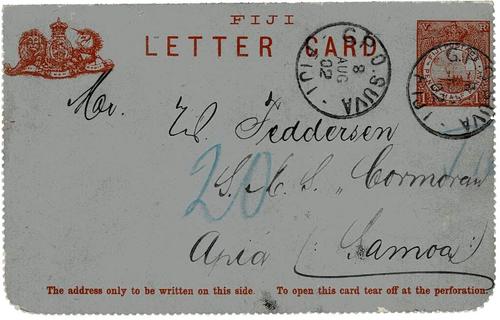 FIJI
LETTER CARD
G.P.O. SUVA
8
AUG
02
FIJI
V R
Mr.
W. Feddersen
20
S.M.S. „Cormoran
Apia (Samoa)
The address only to be written on this side. To open this card tear off at the perforation.